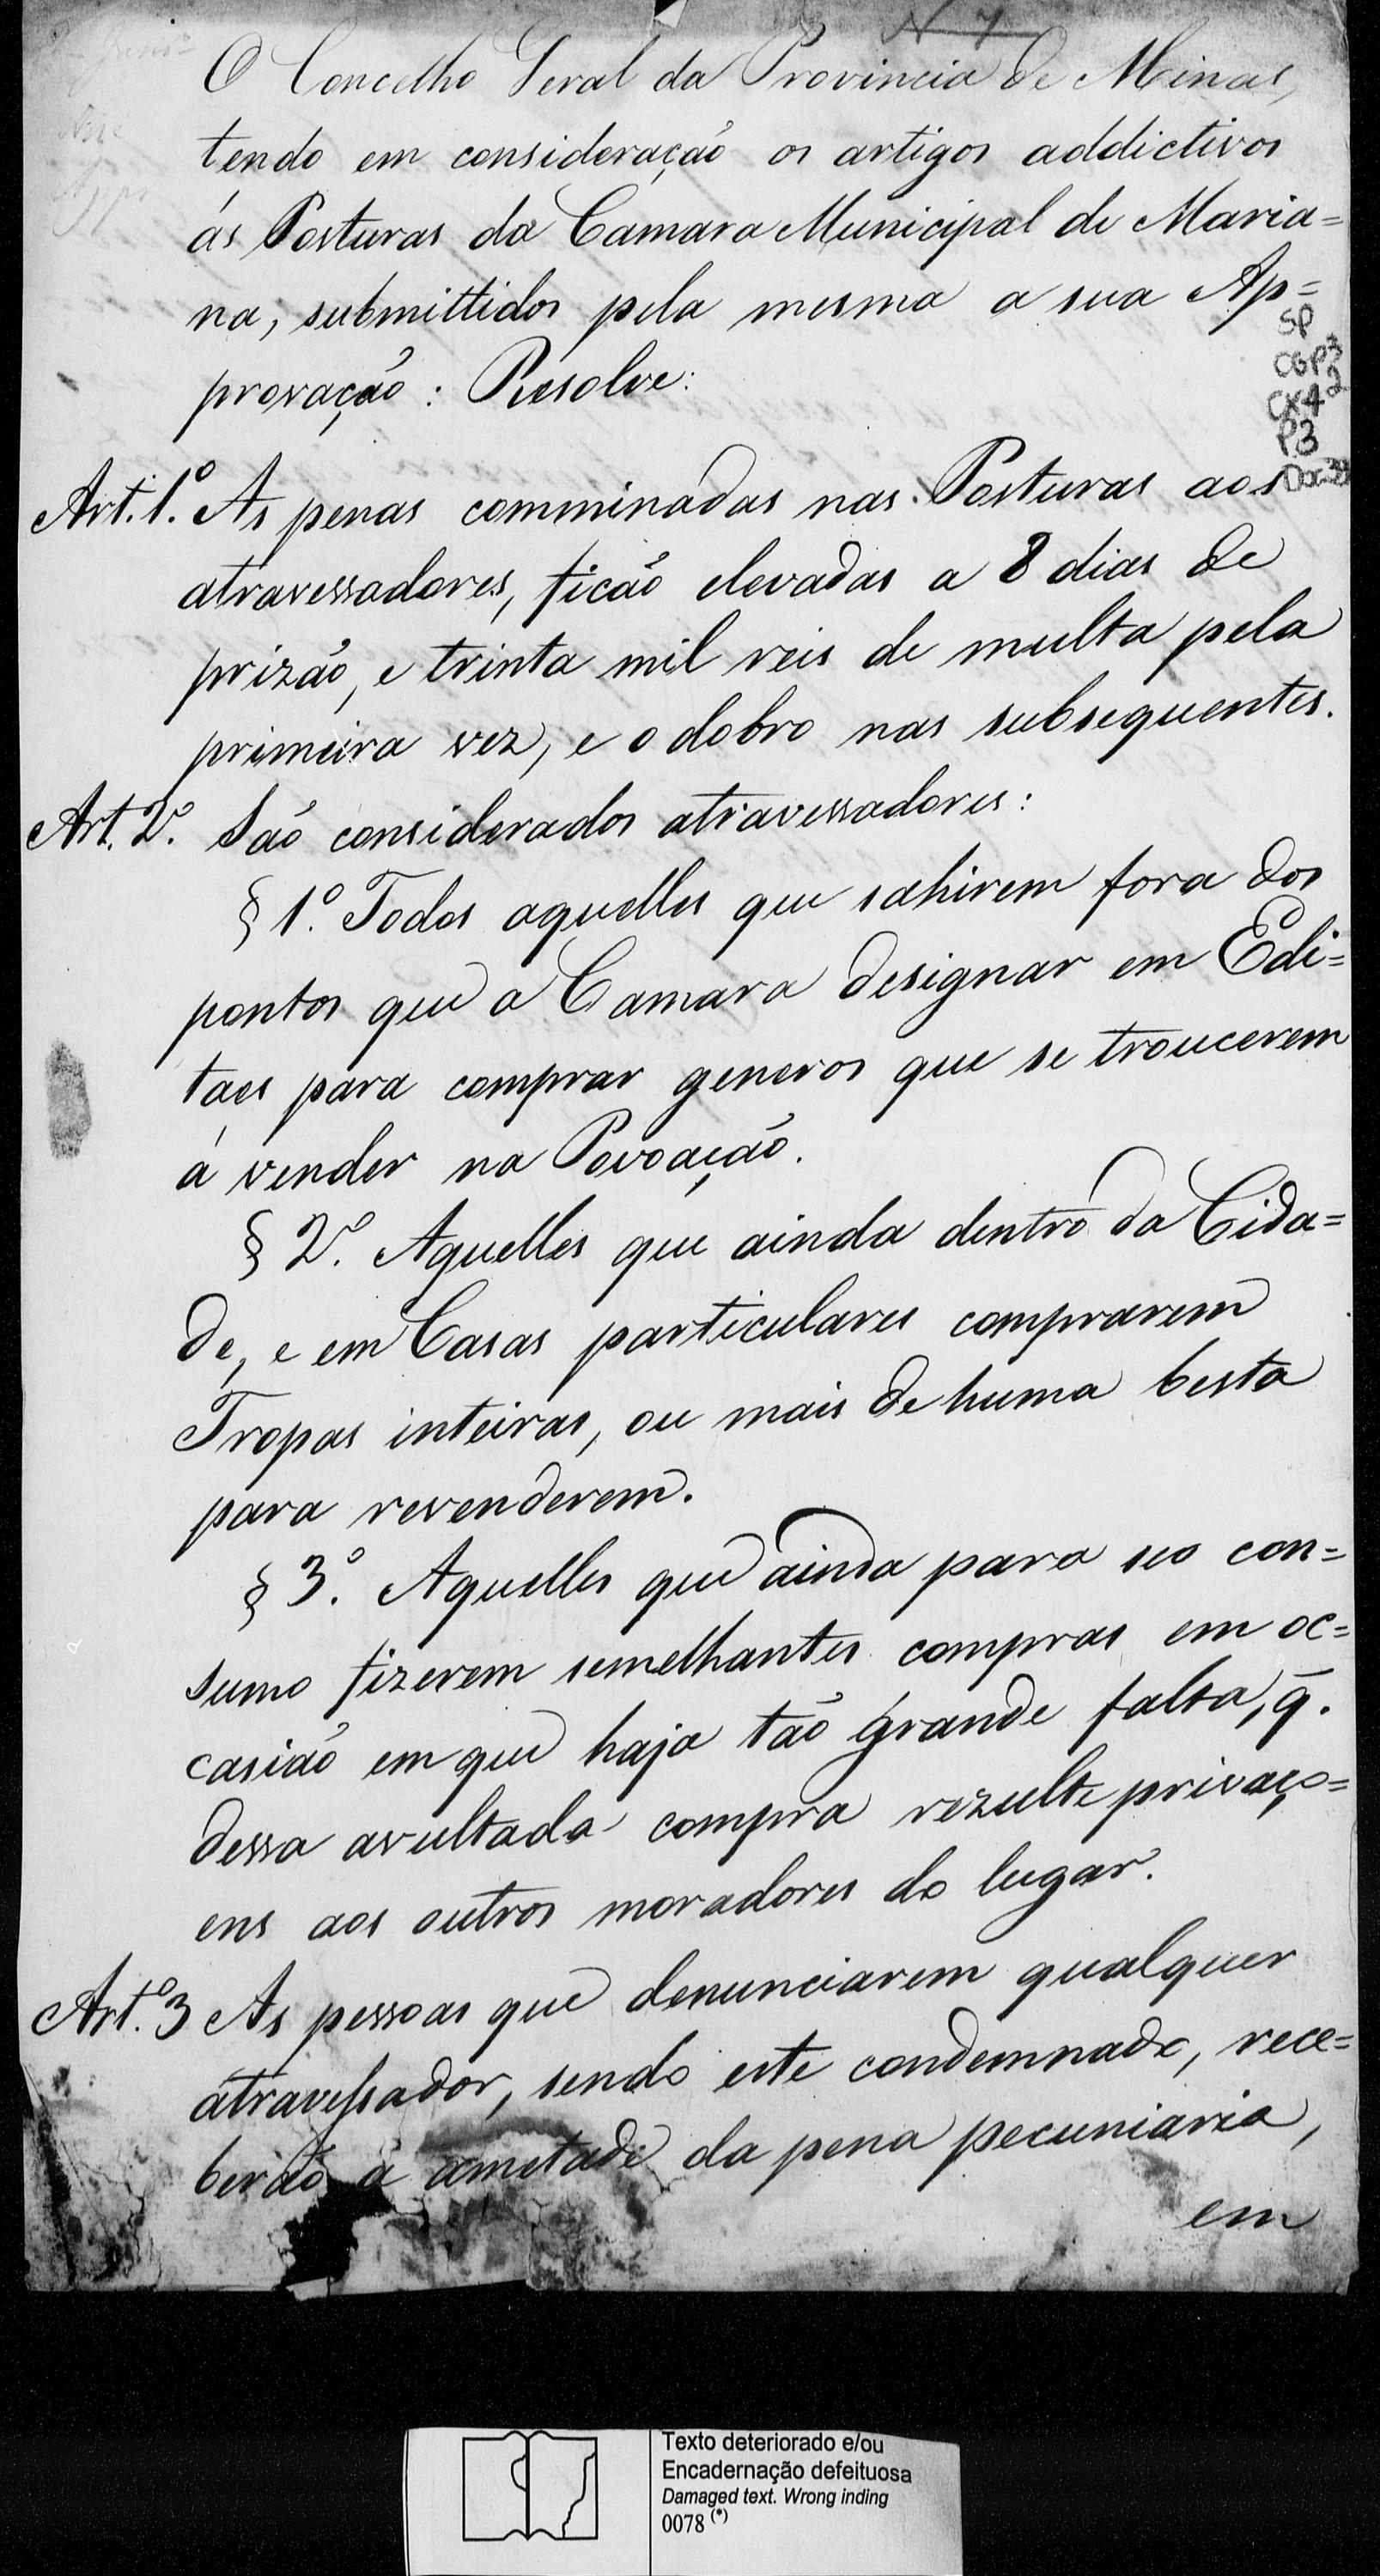 N 7
O Concelho Geral da Provincia de Minas,
tendo em consideração os artigos addictivos
ás Posturas da Camara Municipal de Maria=
na, submittidos pela mesma a sua Ap=
provação: Resolve:
SP
CGP3
CX42
P.3
Doc39
Art. 1.º As penas comminadas nas Posturas aos
atravessadores, ficão elevadas a 8 dias de
prizão, e trinta mil reis de multa pela
primeira vez, e o dobro nas subsequentes.
Art. 2º. São considerados atravessadores:
§ 1.º Todos aquelles que sahirem fora dos
pontos que a Camara designar em Edi=
taes para comprar generos que se troucerem
á vender na Povoação.
§ 2º. Aquelles que ainda dentro da Cida=
de, e em Casas particulares comprarem
Tropas inteiras, ou mais de huma besta
para revenderem.
§ 3.º Aquelles que ainda para seo con=
sumo fizerem semelhantes compras em oc=
casião em que haja tão grande falta, q̃.
dessa avultada compra rezulte privaço=
ens aos outros moradores do lugar.
Art.º 3 As pessoas que denunciarem qualquer
atravessador, sendo este condemnado, rece=
berão a ametade da pena pecuniaria,
em
Texto deteriorado e/ou
Encadernação defeituosa
Damaged text. Wrong inding
0078 (*)